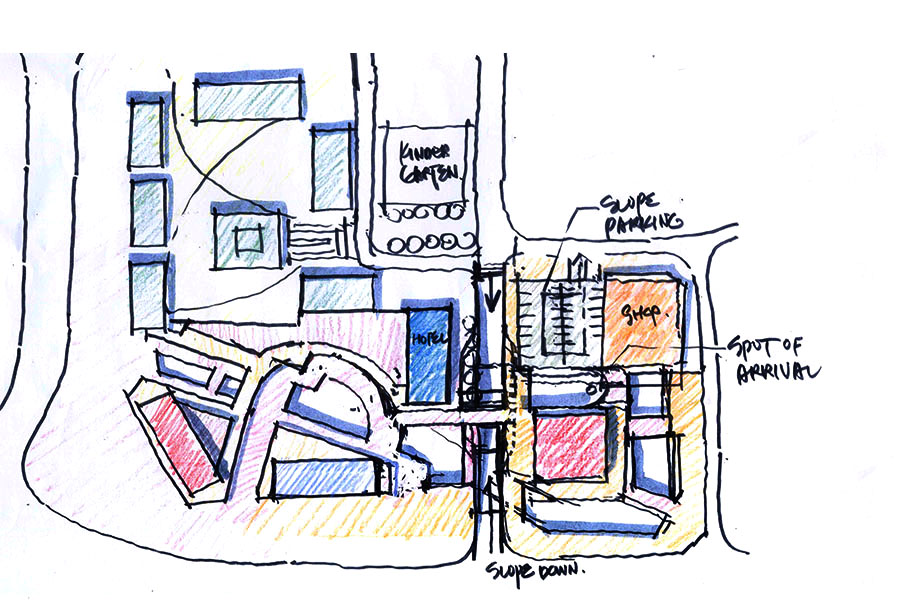 KINDER
GARTEN.
SLOPE
PARKING
SHOP.
HOTEL
SPOT OF
ARRIVAL
SLOPE DOWN.